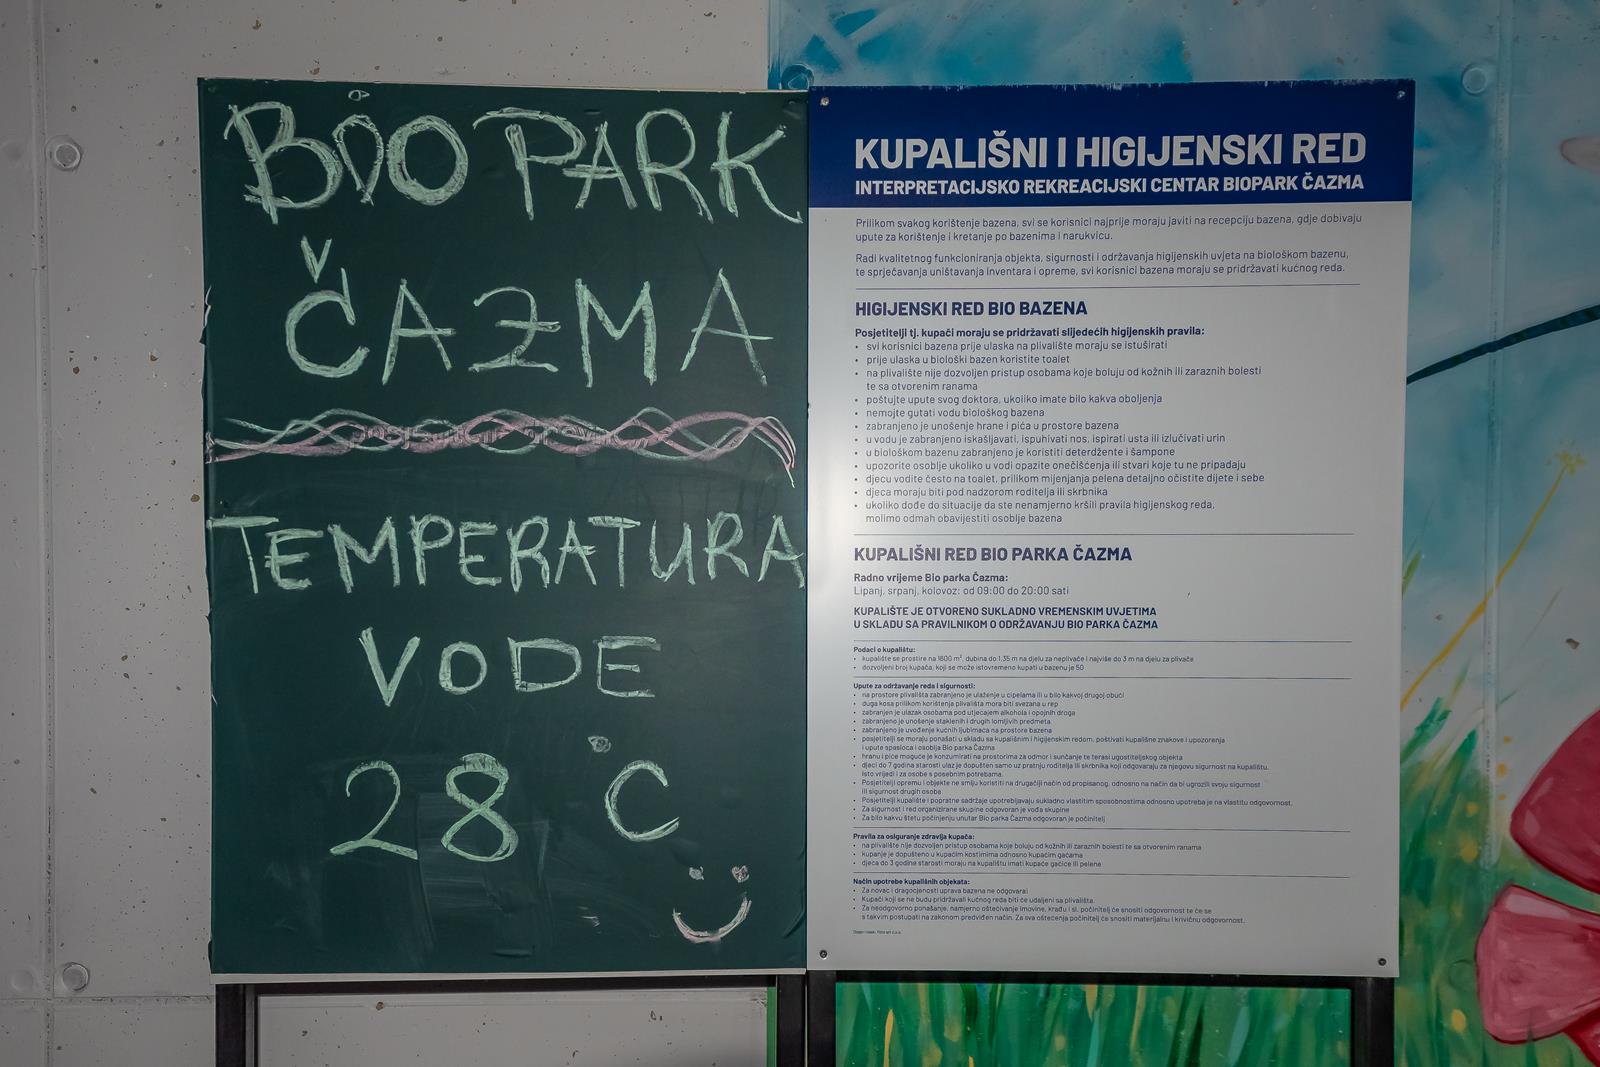 BIO PARK
ČAZMA
TEMPERATURA
VODE
28 °C
KUPALIŠNI I HIGIJENSKI RED
INTERPRETACIJSKO REKREACIJSKI CENTAR BIOPARK ČAZMA
Prilikom svakog korištenje bazena, svi se korisnici najprije moraju javiti na recepciju bazena, gdje dobivaju
upute za korištenje i kretanje po bazenima i narukvicu.
Radi kvalitetnog funkcioniranja objekta, sigurnosti i održavanja higijenskih uvjeta na biološkom bazenu,
te sprječavanja uništavanja inventara i opreme, svi korisnici bazena moraju se pridržavati kućnog reda.
HIGIJENSKI RED BIO BAZENA
Posjetitelji tj. kupači moraju se pridržavati slijedećih higijenskih pravila:
• svi korisnici bazena prije ulaska na plivalište moraju se istuširati
• prije ulaska u biološki bazen koristite toalet
• na plivalište nije dozvoljen pristup osobama koje boluju od kožnih ili zaraznih bolesti
te sa otvorenim ranama
• poštujte upute svog doktora, ukoliko imate bilo kakva oboljenja
• nemojte gutati vodu biološkog bazena
• zabranjeno je unošenje hrane i pića u prostore bazena
• u vodu je zabranjeno iskašljavati, ispuhivati nos, ispirati usta ili izlučivati urin
• u biološkom bazenu zabranjeno je koristiti deterdžente i šampone
• upozorite osoblje ukoliko u vodi opazite onečišćenja ili stvari koje tu ne pripadaju
• djecu vodite često na toalet, prilikom mijenjanja pelena detaljno očistite dijete i sebe
• djeca moraju biti pod nadzorom roditelja ili skrbnika
• ukoliko dođe do situacije da ste nenamjerno kršili pravila higijenskog reda,
molimo odmah obavijestiti osoblje bazena
KUPALIŠNI RED BIO PARKA ČAZMA
Radno vrijeme Bio parka Čazma:
Lipanj, srpanj, kolovoz: od 09:00 do 20:00 sati
KUPALIŠTE JE OTVORENO SUKLADNO VREMENSKIM UVJETIMA
U SKLADU SA PRAVILNIKOM O ODRŽAVANJU BIO PARKA ČAZMA
Podaci o kupalištu:
• kupalište se prostire na 1600 m², dubina do 1,35 m na djelu za neplivače i najviše do 3 m na djelu za plivače
• dozvoljeni broj kupača, koji se može istovremeno kupati u bazenu je 50
Upute za održavanje reda i sigurnosti:
• na prostore plivališta zabranjeno je ulaženje u cipelama ili u bilo kakvoj drugoj obući
• duga kosa prilikom korištenja plivališta mora biti svezana u rep
• zabranjen je ulazak osobama pod utjecajem alkohola i opojnih droga
• zabranjeno je unošenje staklenih i drugih lomljivih predmeta
• zabranjeno je uvođenje kućnih ljubimaca na prostore bazena
• posjetitelji se moraju ponašati u skladu sa kupališnim i higijenskim redom, poštivati kupališne znakove i upozorenja
i upute spasioca i osoblja Bio parka Čazma
• hranu i piće moguće je konzumirati na prostorima za odmor i sunčanje te terasi ugostiteljskog objekta
• djeci do 7 godina starosti ulaz je dopušten samo uz pratnju roditelja ili skrbnika koji odgovaraju za njegovu sigurnost na kupalištu,
isto vrijedi i za osobe s posebnim potrebama.
• Posjetitelji opremu i objekte ne smiju koristiti na drugačiji način od propisanog, odnosno na način da bi ugrozili svoju sigurnost
ili sigurnost drugih osoba
• Posjetitelji kupalište i popratne sadržaje upotrebljavaju sukladno vlastitim sposobnostima odnosno upotreba je na vlastitu odgovornost.
• Za sigurnost i red organizirane skupine odgovoran je vođa skupine
• Za bilo kakvu štetu počinjenju unutar Bio parka Čazma odgovoran je počinitelj
Pravila za osiguranje zdravlja kupača:
• na plivalište nije dozvoljen pristup osobama koje boluju od kožnih ili zaraznih bolesti te sa otvorenim ranama
• kupanje je dopušteno u kupaćim kostimima odnosno kupaćim gaćama
• djeca do 3 godine starosti moraju na kupalištu imati kupaće gaćice ili pelene
Način upotrebe kupališnih objekata:
• Za novac i dragocjenosti uprava bazena ne odgovara
• Kupači koji se ne budu pridržavali kućnog reda biti će udaljeni sa plivališta.
• Za neodgovorno ponašanje, namjerno oštećivanje imovine, krađu i sl. počinitelj će snositi odgovornost te će se
s takvim postupati na zakonom predviđen način. Za sva oštećenja počinitelj će snositi materijalnu i krivičnu odgovornost.